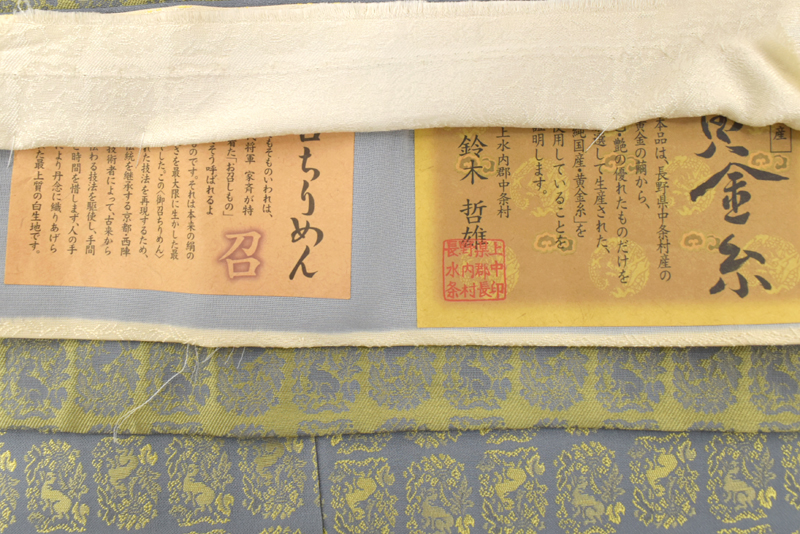 産
黄金糸
本品は、長野県中条村産の
黄金の繭から、
・艶の優れたものだけを
通して生産された、
純国産・黄金糸」を
使用していることを
証明します。
上水内郡中条村
鈴木 哲雄
上中印
県郡長
野内村
長水条
召ちりめん
召
もそものいわれは、
将軍 家斉が特
着た「お召しもの」
そう呼ばれるよ
ものです。それは本来の絹の
さを最大限に生かした最
した。この〈御召ちりめん〉
れた技法を再現するため、
伝統を継承する京都・西陣
技術者によって、古来から
伝わる技法を駆使し、手間
時間を惜しまず、人の手
により丹念に織りあげら
た最上質の白生地です。